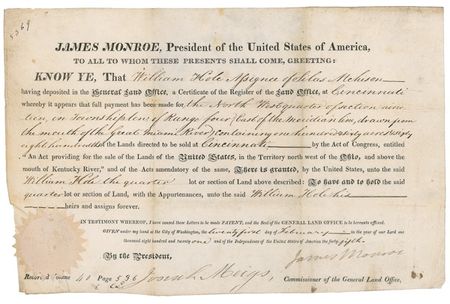 5369
JAMES MONROE, President of the United States of America,
TO ALL TO WHOM THESE PRESENTS SHALL COME, GREETING:
KNOW YE, That William Hole Assignee of Silas
having deposited in the General Land Office, a Certificate of the Register of the Land Office, at Cincinnati
whereby it appears that full payment has been made for the North West quarter of section nine
teen, on Township of Range four, East of the Meridian line, drawn from
the mouth of the Great Miami River, containing one hundred sixty acres sixty
eight hundredths of the Lands directed to be sold at Cincinnati by the Act of Congress, entitled
“An Act providing for the sale of the Lands of the United States, in the Territory west of the Ohio, and above the
mouth of Kentucky River,” and of the Acts amendatory of the same, There is granted, by the United States, unto the said
William Hole the quarter lot or section of Land above described: To have and to hold the said
quarter lot or section of Land, with the Appurtenances, unto the said William Hole his
heirs and assigns forever.
IN TESTIMONY WHEREOF, I have caused these Letters to be made PATENT, and the Seal of the GENERAL LAND OFFICE to be hereunto affixed.
GIVEN under my hand at the City of Washington, the twenty first day of February in the year of our Lord one
thousand eight hundred and twenty one and of the Independence of the United States of America the forty fifth.
By the President,
James Monroe
Josiah Meigs, Commissioner of the General Land Office.
Recorded Volume 40 Page 536